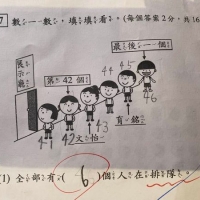 7 數一數，填填看。(每個答案2分，共16
展示廳
第42個！
最後一個！
41 42 43 44 45 46
文怡
育銘
(1) 全部有( 6 )個人在排隊。